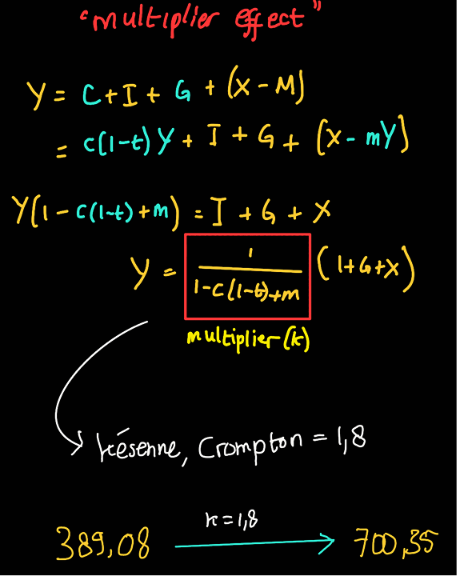 "multiplier effect"
Y = C + I + G + (X - M)
= c(1-t)Y + I + G + (X - mY)
Y(1 - c(1-t) + m) = I + G + X
Y = 1 / 1-c(1-t)+m (1+G+X)
multiplier (k)
Késenne, Crompton = 1,8
k = 1,8
389,08 → 700,35